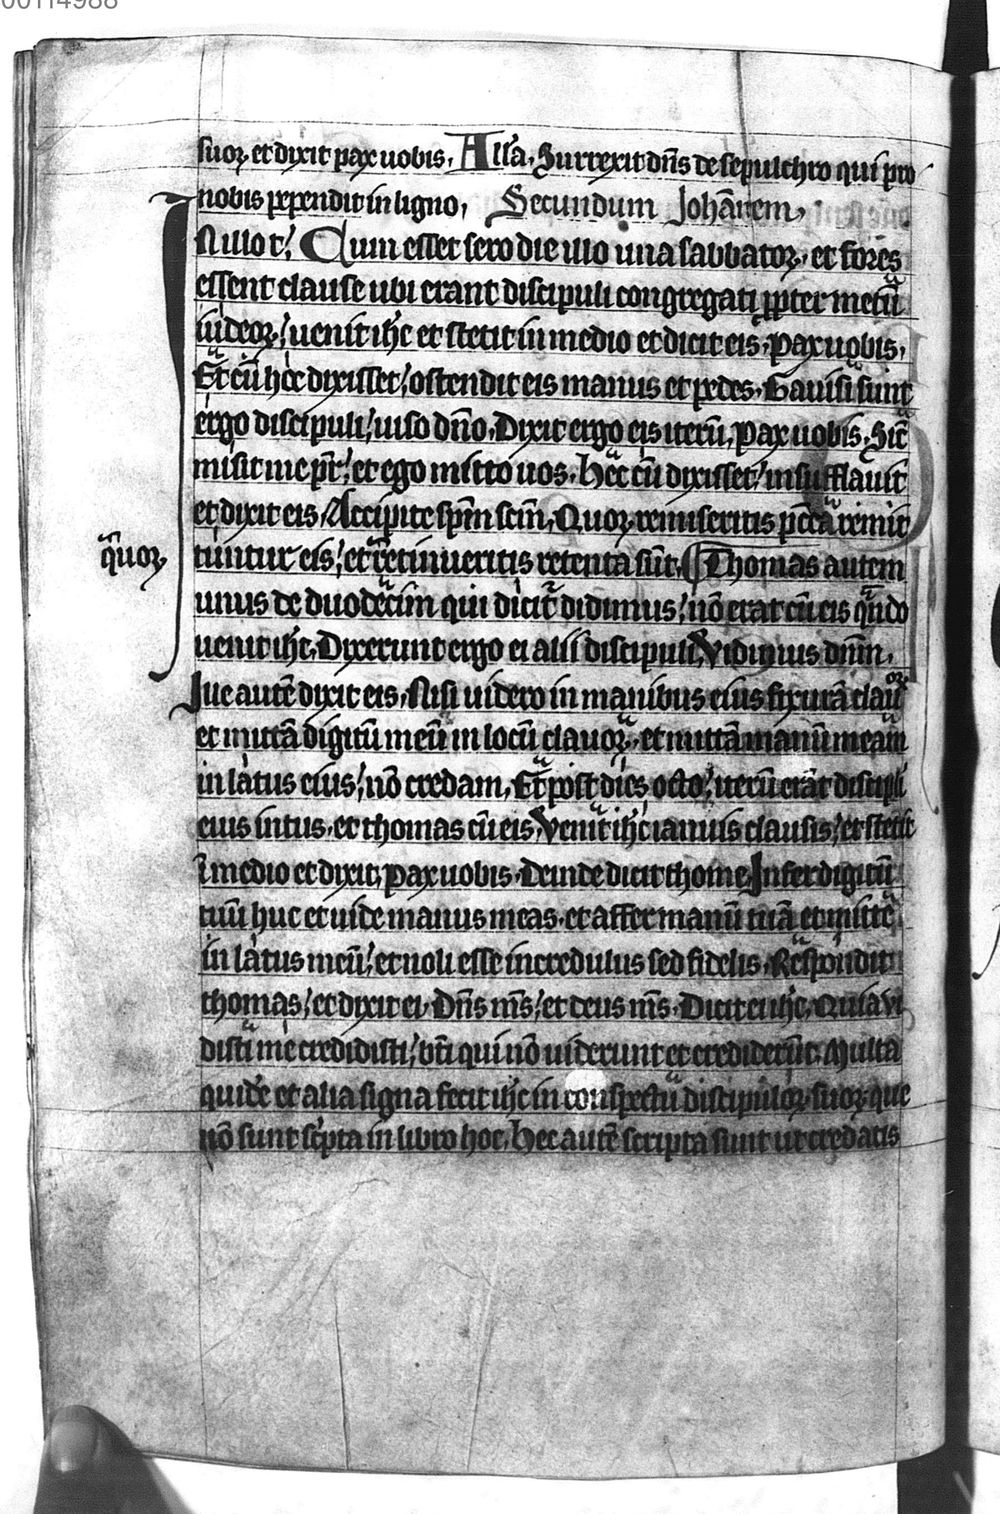 00114988
suoꝝ et dixit pax uobis. All'a. Surrexit dn̄s de sepulchro qui pro
nobis pependit in ligno, Secundum Johānem,
In illo t'. Cum esset sero die illo una sabbatoꝝ. et fores
essent clause ubi erant discipuli congregati ꝓpter metū
iudeoꝝ. uenit ih̄c et stetit in medio et dicit eis. pax uobis.
Et cū hoc dixisset. ostendit eis manus et pedes. Gauisi sunt
ergo discipuli. uiso dn̄o. Dixit ergo eis iterū. pax uobis. Sic̄
misit me pr̄. et ego mitto uos. Hec cū dixisset. insufflauit
et dixit eis. Accipite spm̄ scm̄. Quoꝝ remiseritis pc̄cā remit
tuntur eis. et retinueritis retenta sūt. Thomas autem
quoꝝ
unus de duodecim qui dicit̄ didimus. nō erat cū eis qn̄do
uenit ih̄c. Dixerunt ergo ei alii discipuli. Vidimus dn̄m.
Ille autē dixit eis. Nisi uidero in manibus eius fixurā clauoꝝ
et mittā digitū meū in locū clauoꝝ. et mittā manū meam
in latus eius. nō credam. Et post dies octo. iterū erāt discipli
eius intus. et thomas cū eis. Venit ih̄c ianuis clausis. et stetit
ī medio et dixit. pax uobis. Deinde dicit thome. Infer digitū
tuū huc et uide manus meas. et affer manū tuā et mitte
in latus meū. et noli esse incredulus sed fidelis. Respondit
thomas. et dixit ei. Dn̄s ms̄. et deus ms̄. Dicit ei ih̄c. Quia vi
disti me credidisti. bt̄i qui nō uiderunt et crediderūt. Multa
quidē et alia signa fecit ih̄c in conspectu discipuloꝝ suoꝝ que
nō sunt sc'pta in libro hoc. Hec autē scripta sunt ut credatis